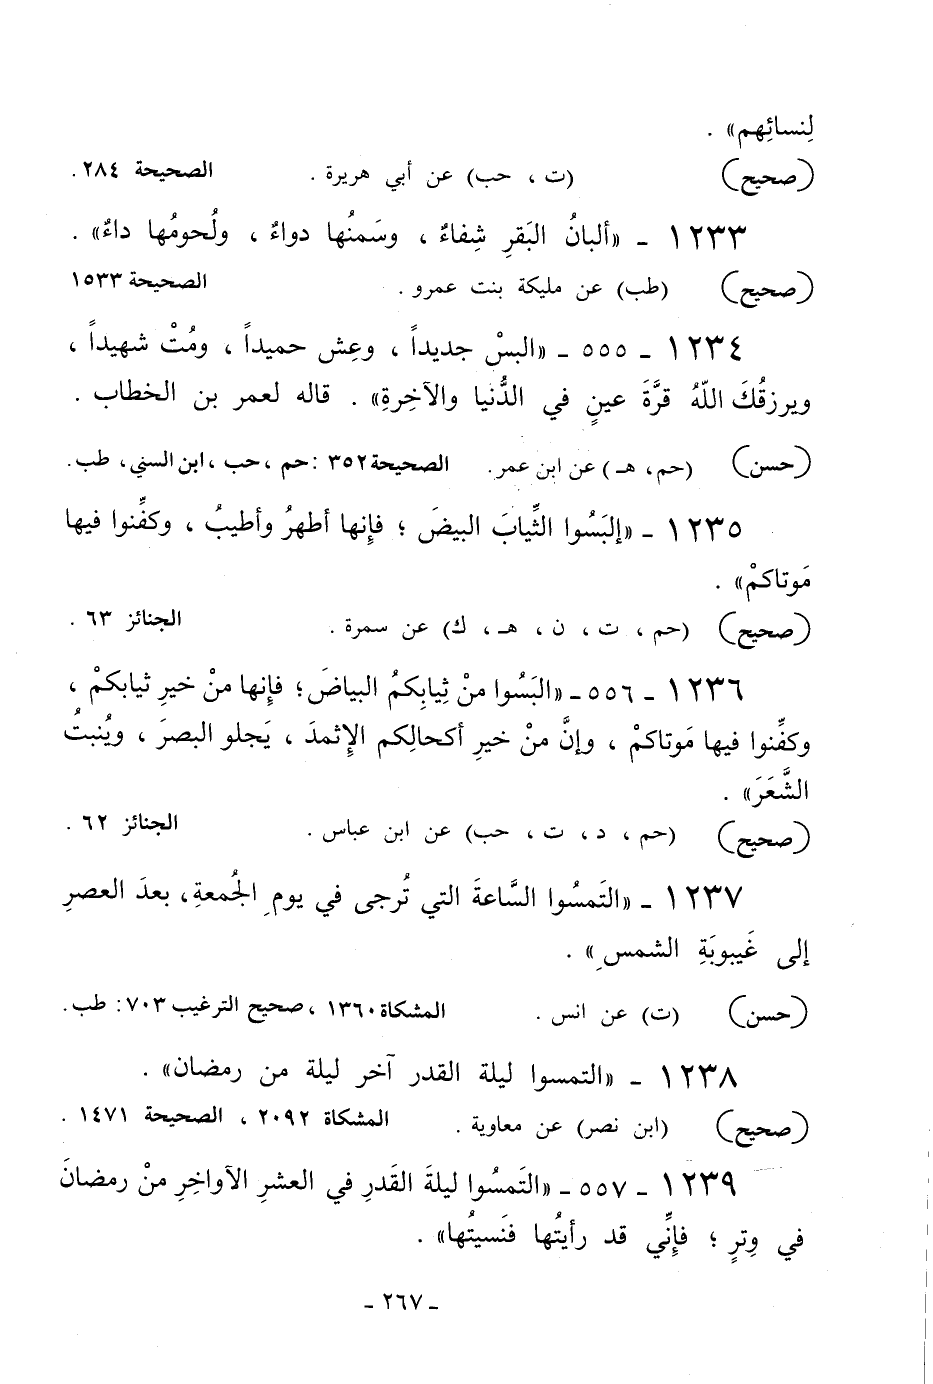 لِنسائِهم» .
(صحيح) (ت ، حب) عن أبي هريرة . الصحيحة ٢٨٤ .
١٢٣٣ ـ «ألبانُ البَقرِ شِفاءٌ ، وسَمنُها دواءٌ ، ولُحومُها داءٌ» .
(صحيح) (طب) عن مليكة بنت عمرو . الصحيحة ١٥٣٣
١٢٣٤ ـ ٥٥٥ ـ «البسْ جديداً ، وعِش حميداً ، ومُتْ شهيداً ،
ويرزقُكَ اللّهُ قرَّةَ عينٍ في الدُّنيا والآخِرةِ» . قاله لعمر بن الخطاب .
(حسن) (حم، هـ) عن ابن عمر. الصحيحة ٣٥٢ : حم ، حب ، ابن السني، طب.
١٢٣٥ ـ «إلبَسُوا الثِّيابَ البيضَ ؛ فإِنها أطهرُ وأطيبُ ، وكفِّنوا فيها
مَوتاكمْ» .
(صحيح) (حم ، ت ، ن ، هـ ، ك) عن سمرة . الجنائز ٦٣ .
١٢٣٦ ـ ٥٥٦ ـ «البَسُوا منْ ثِيابِكمُ البياضَ ؛ فإِنها منْ خيرِ ثيابكمْ ،
وكفِّنوا فيها مَوتاكمْ ، وإنَّ منْ خيرِ أكحالِكم الإِثمدَ ، يَجلو البصرَ ، ويُنبتُ
الشَّعَرَ» .
(صحيح) (حم ، د ، ت ، حب) عن ابن عباس . الجنائز ٦٢ .
١٢٣٧ ـ «التَمسُوا السَّاعةَ التي تُرجى في يومِ الجُمعةِ، بعدَ العصرِ
إلى غَيبوبَةِ الشمسِ» .
(حسن) (ت) عن انس . المشكاة ١٣٦٠ ، صحيح الترغيب ٧٠٣ : طب.
١٢٣٨ ـ «التمسوا ليلة القدر آخر ليلة من رمضان» .
(صحيح) (ابن نصر) عن معاوية . المشكاة ٢٠٩٢ ، الصحيحة ١٤٧١ .
١٢٣٩ ـ ٥٥٧ ـ «التَمسُوا ليلةَ القَدرِ في العشرِ الآواخِرِ منْ رمضانَ
في وِترٍ ؛ فإِنِّي قد رأيتُها فنَسيتُها» .
ـ ٢٦٧ ـ